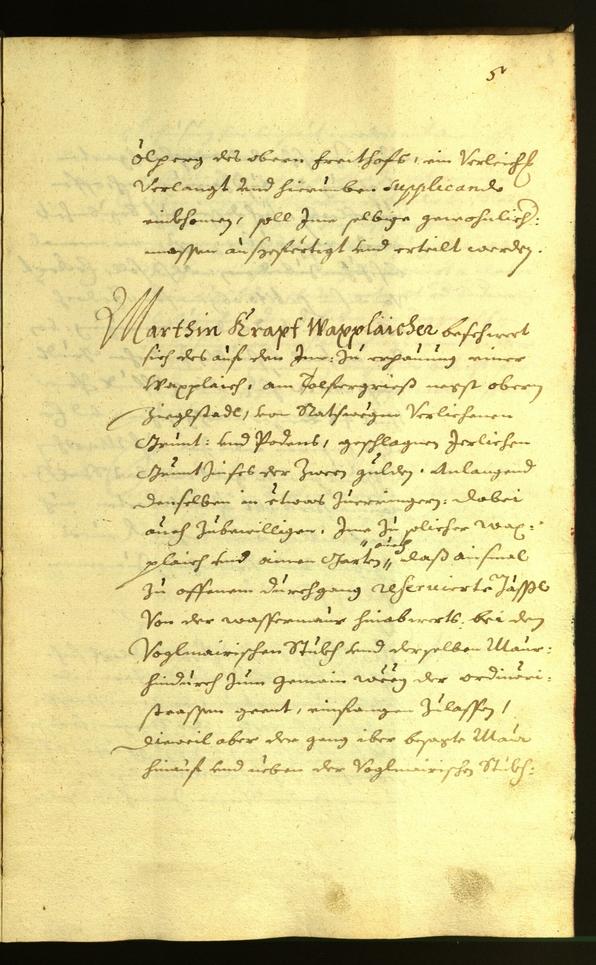 5
ölperg des obern freithofs, ein Verleich
Verlangt und hierumben Supplicando
einkhomen, soll Jme selbige gewohnlich:
massen außgefertigt und erteilt werden.
Marthin Krapf Wapplaicher beschwert
sich des auf den Jme: zu erpauung einer
Wapplaich, am Tolfergrieß negst obern
Zieglstadl, von Rathswegen Verlichenen
Grunt: und Podens, geschlagnen Jerlichen
Gruntzinses der Zween gulden. Anlangend
denselben in etwas zuerringern: dabei
auch zubewilligen, Jme zu solicher wap:
plaich und ainen Garten, auch daß ainsmal
zu offenem durchgang reservierte Gässl
Von der wassermaur hinabwerts bei den
Voglmairischen Stübch und derselben Maur:
hindurch zum gemain weeg der ordinari:
strassen geent, einfangen zulassen,
Dieweil aber der gang iber besagte Maur
hinauf und neben der Voglmairischen Stübch: